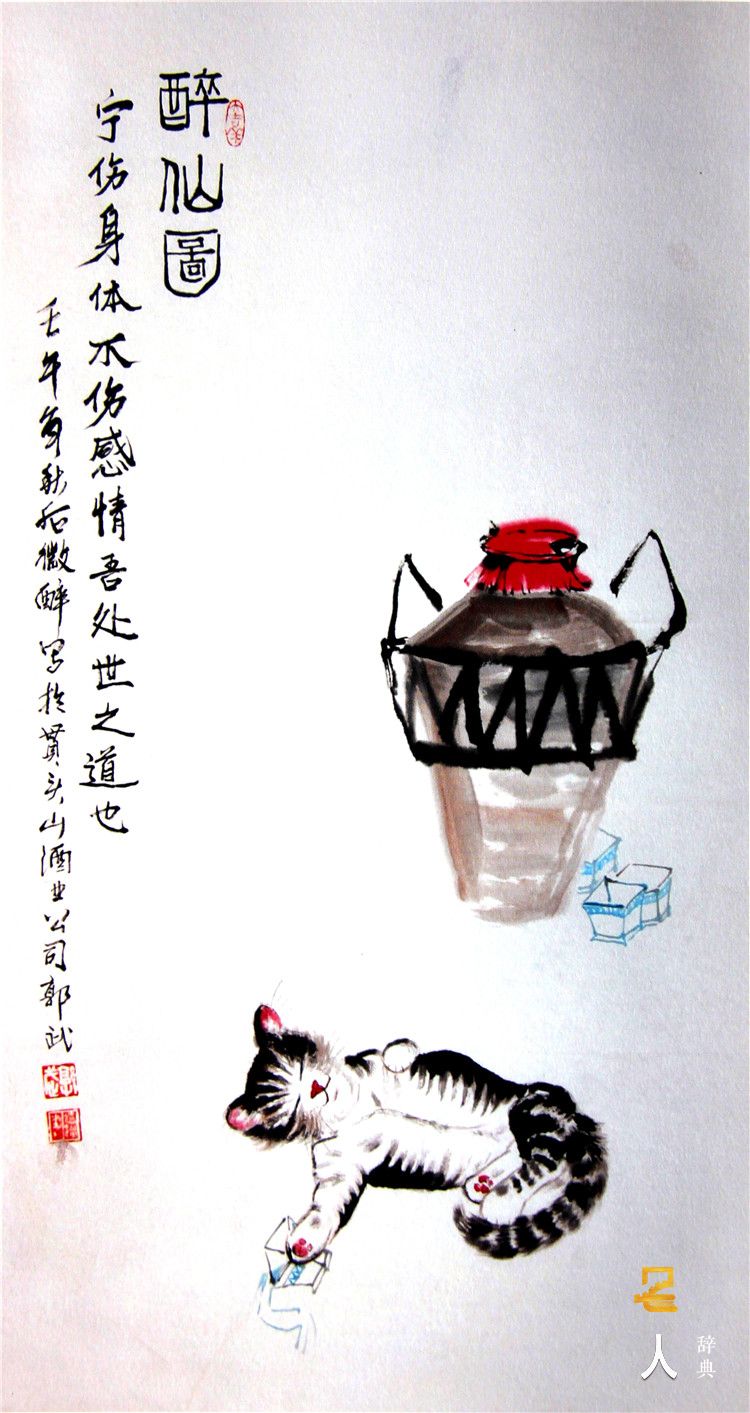 醉仙圖
宁伤身体不伤感情吾处世之道也
壬午年秋后微醉写于贯头山酒业公司郭武
名人
辞典